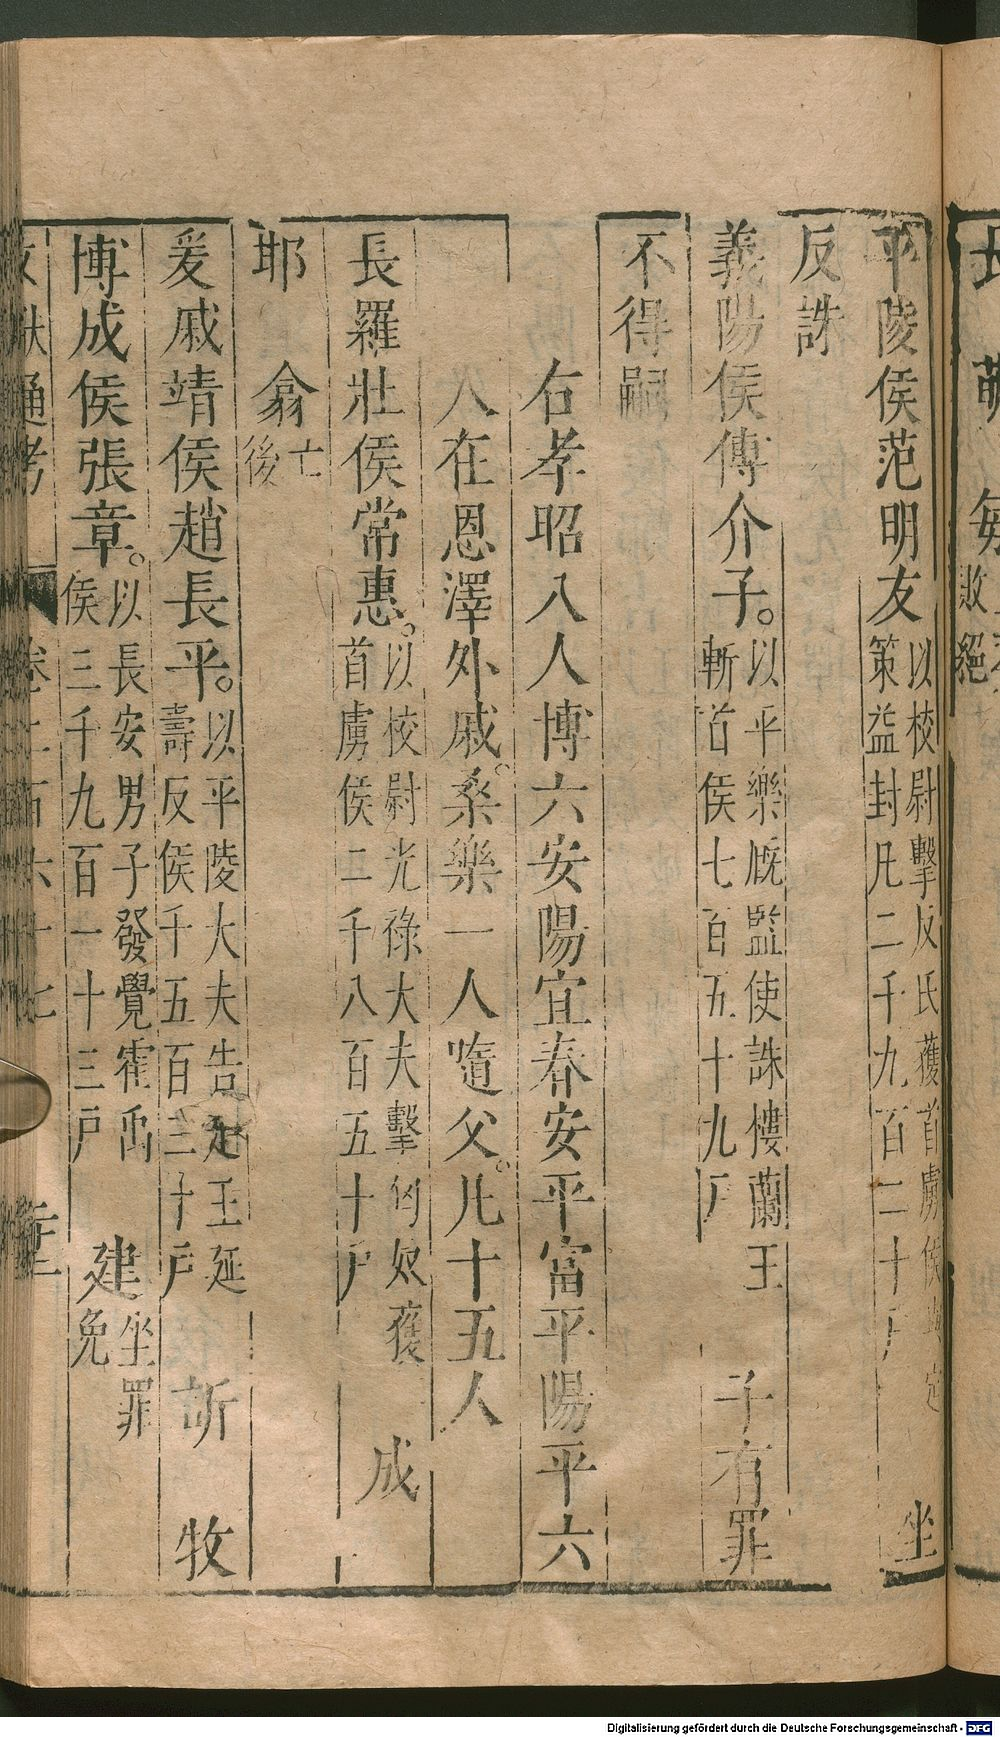 平陵侯范明友以校尉擊反氏獲首虜侯
策益封凡二千九百二十戶坐
反誅
義陽侯傅介子。以平樂廐監使誅樓蘭王
斬首侯七百五十九戶子有罪
不得嗣
右孝昭八人博六安陽宜春安平富平陽平六
人在恩澤外戚。桑樂一人隨父。凡十五人
長羅壯侯常惠。以校尉光祿大夫擊匈奴獲
首虜侯二千八百五十戶成
邯翕亡
後
爰戚靖侯趙長平。以平陵大夫告
壽反侯千五百三十戶訢牧
博成侯張章。以長安男子發覺霍禹
侯三千九百一十三戶建坐罪
免
通考
敗絕
Digitalisierung gefördert durch die Deutsche Forschungsgemeinschaft - DFG